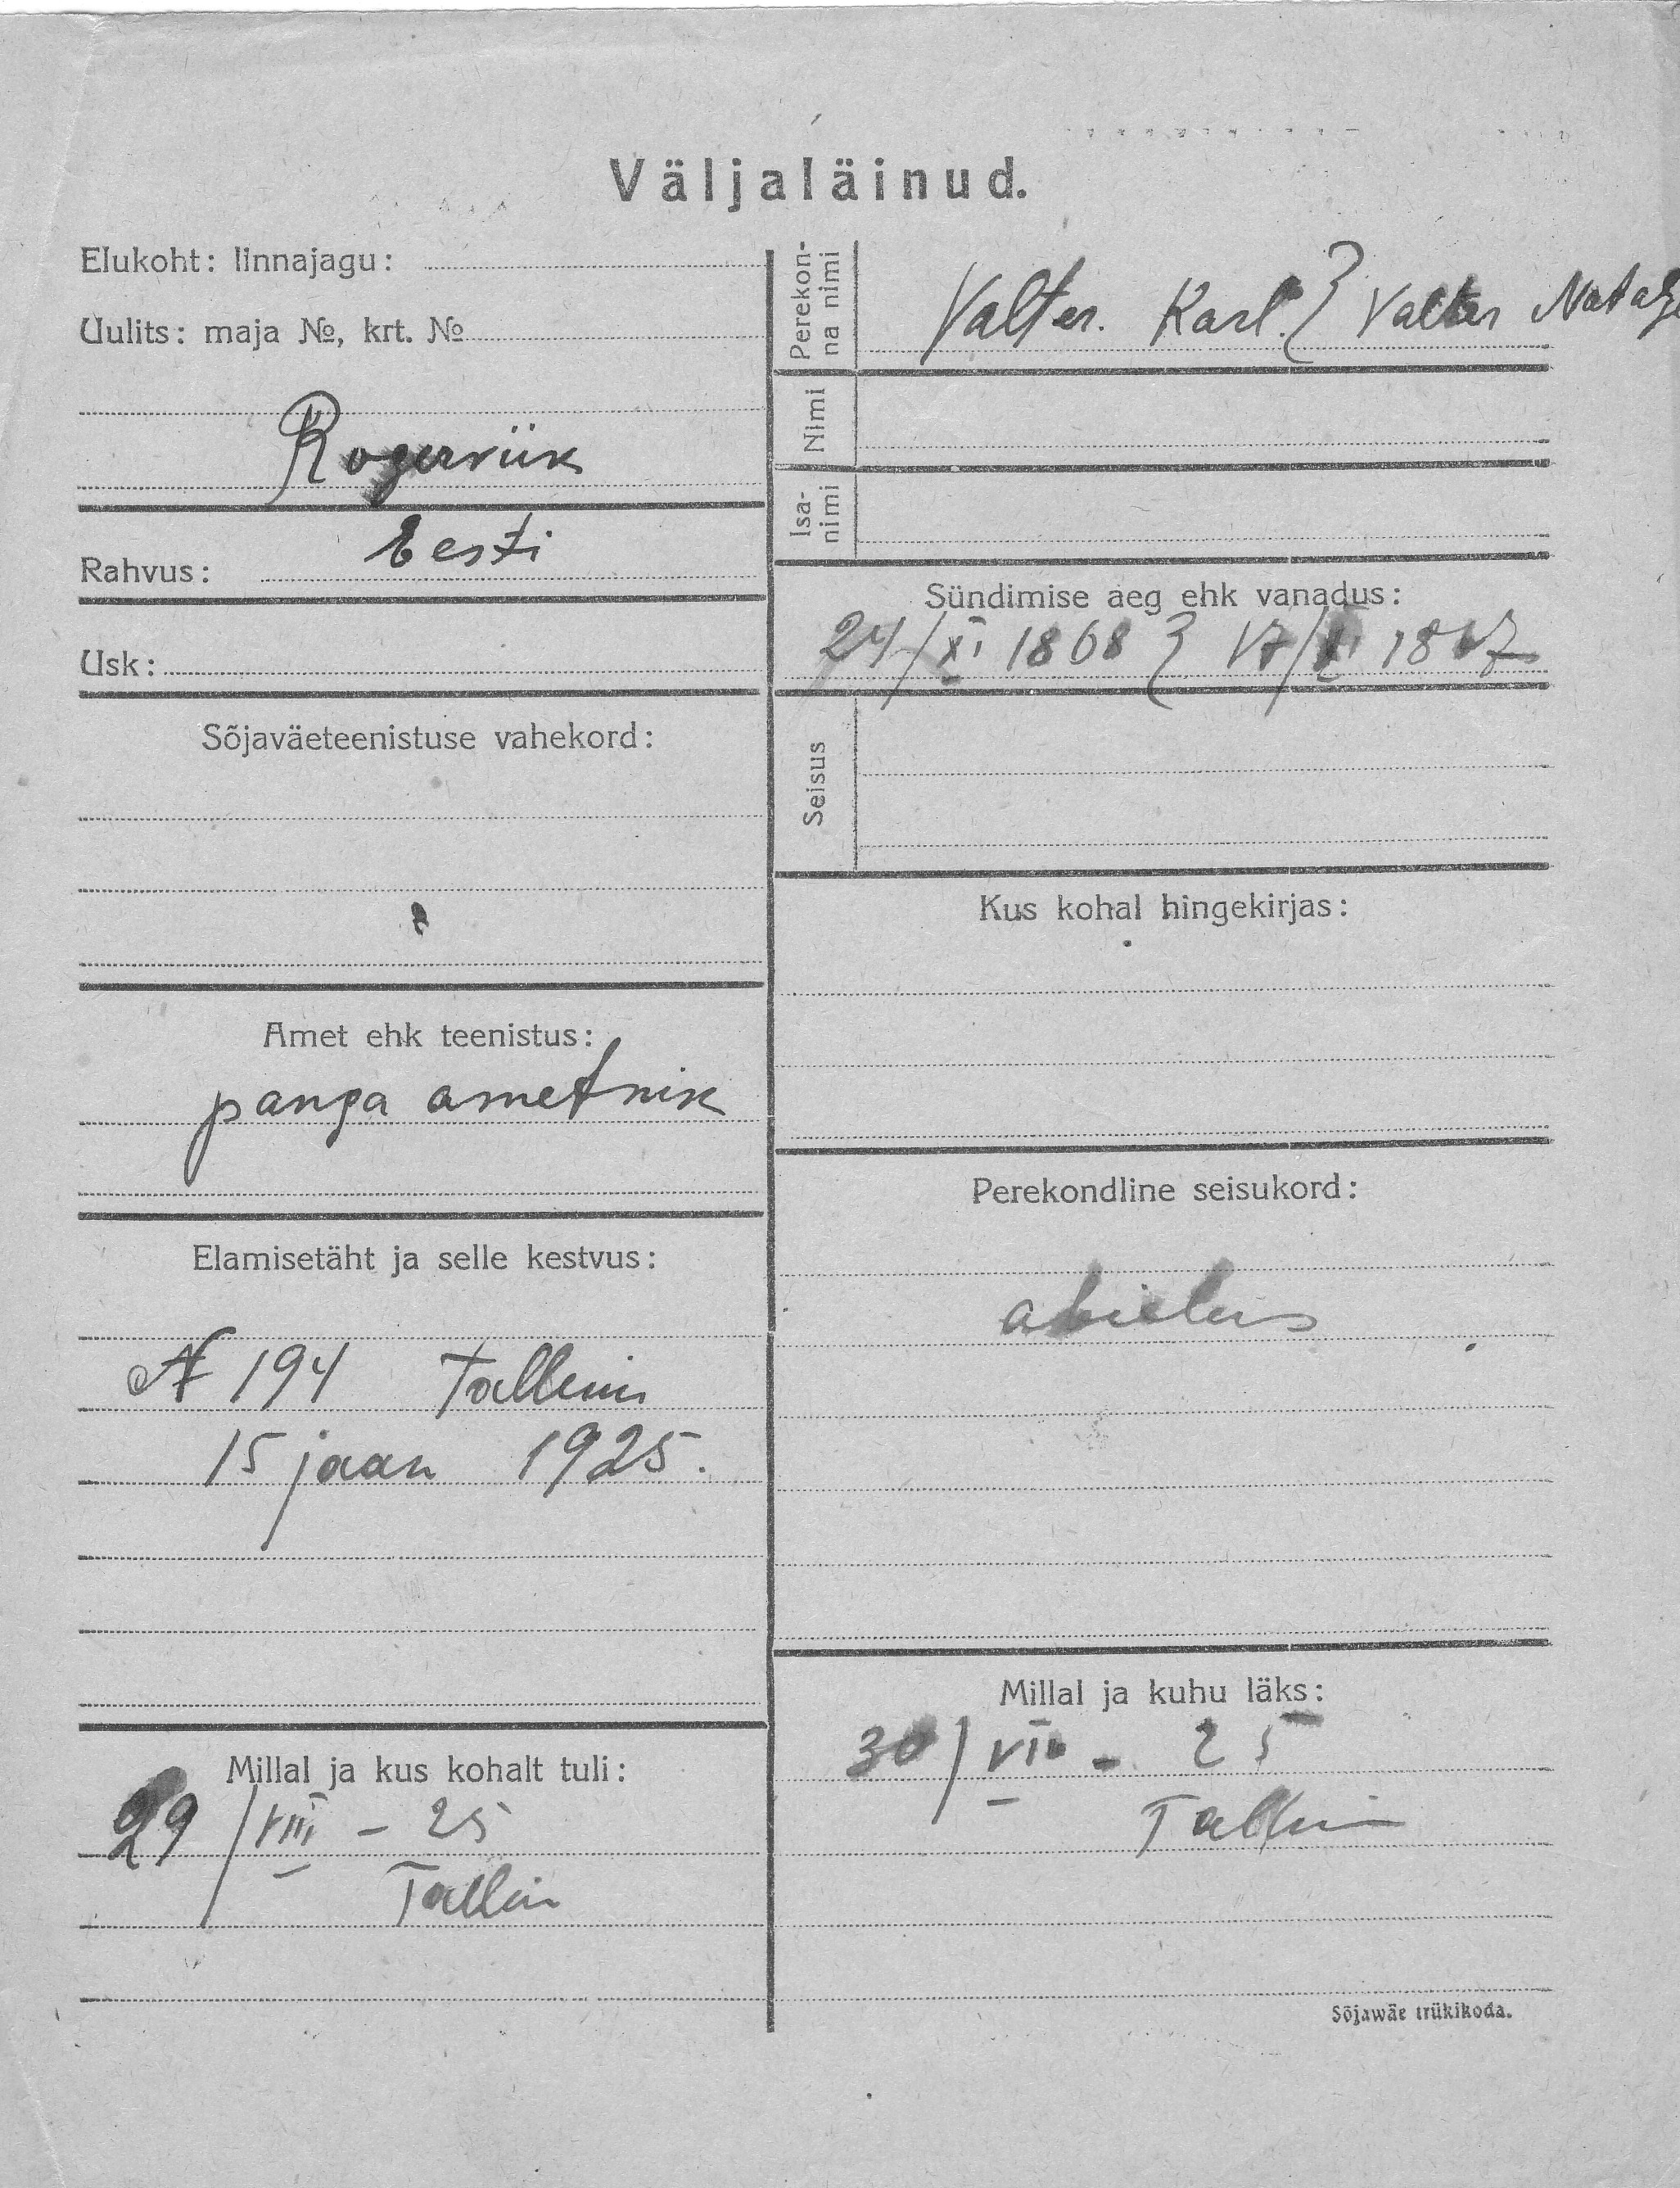 Väljaläinud.
Elukoht: linnajagu:
Uulits: maja №, krt. №
Rogerviik
Rahvus: Eesti
Usk:
Sõjaväeteenistuse vahekord:
Amet ehk teenistus:
panga ametnik
Elamisetäht ja selle kestvus:
№ 194 Tallinn
15 jaan 1925.
Millal ja kus kohalt tuli:
29/VIII – 25
Tallin
Perekonna nimi
Valter. Karl. } Valter
Nimi
Isanimi
Sündimise aeg ehk vanadus:
24/XI 1868 } 17/XI
Seisus
Kus kohal hingekirjas:
Perekondline seisukord:
abielus
Millal ja kuhu läks:
30/ - 25
Tallin
Sõjawäe trükikoda.